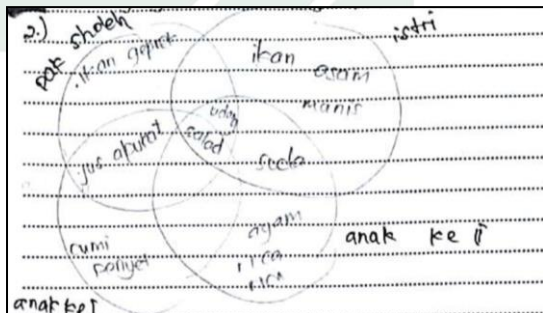 2.)
pak sholeh
istri
ikan geprek
ikan
asam
manis
udang
salad
jus alpukat
soda
cumi
ayam
rica
rica
anak ke II
anak ke I